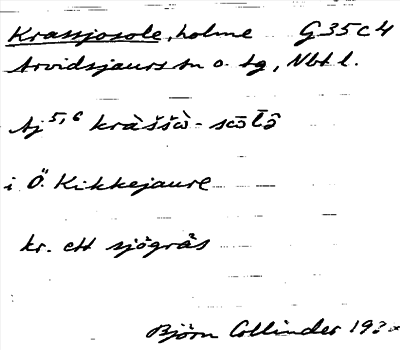 Krassjosole, holme G 35 c 4
Arvidsjaurs sn o. tg, Nbt l.
Aj 5,6 kràššò̀ - sō̭lō̭
i Ö. Kikkejaure
kr. ett sjögräs
Björn Collinder 19